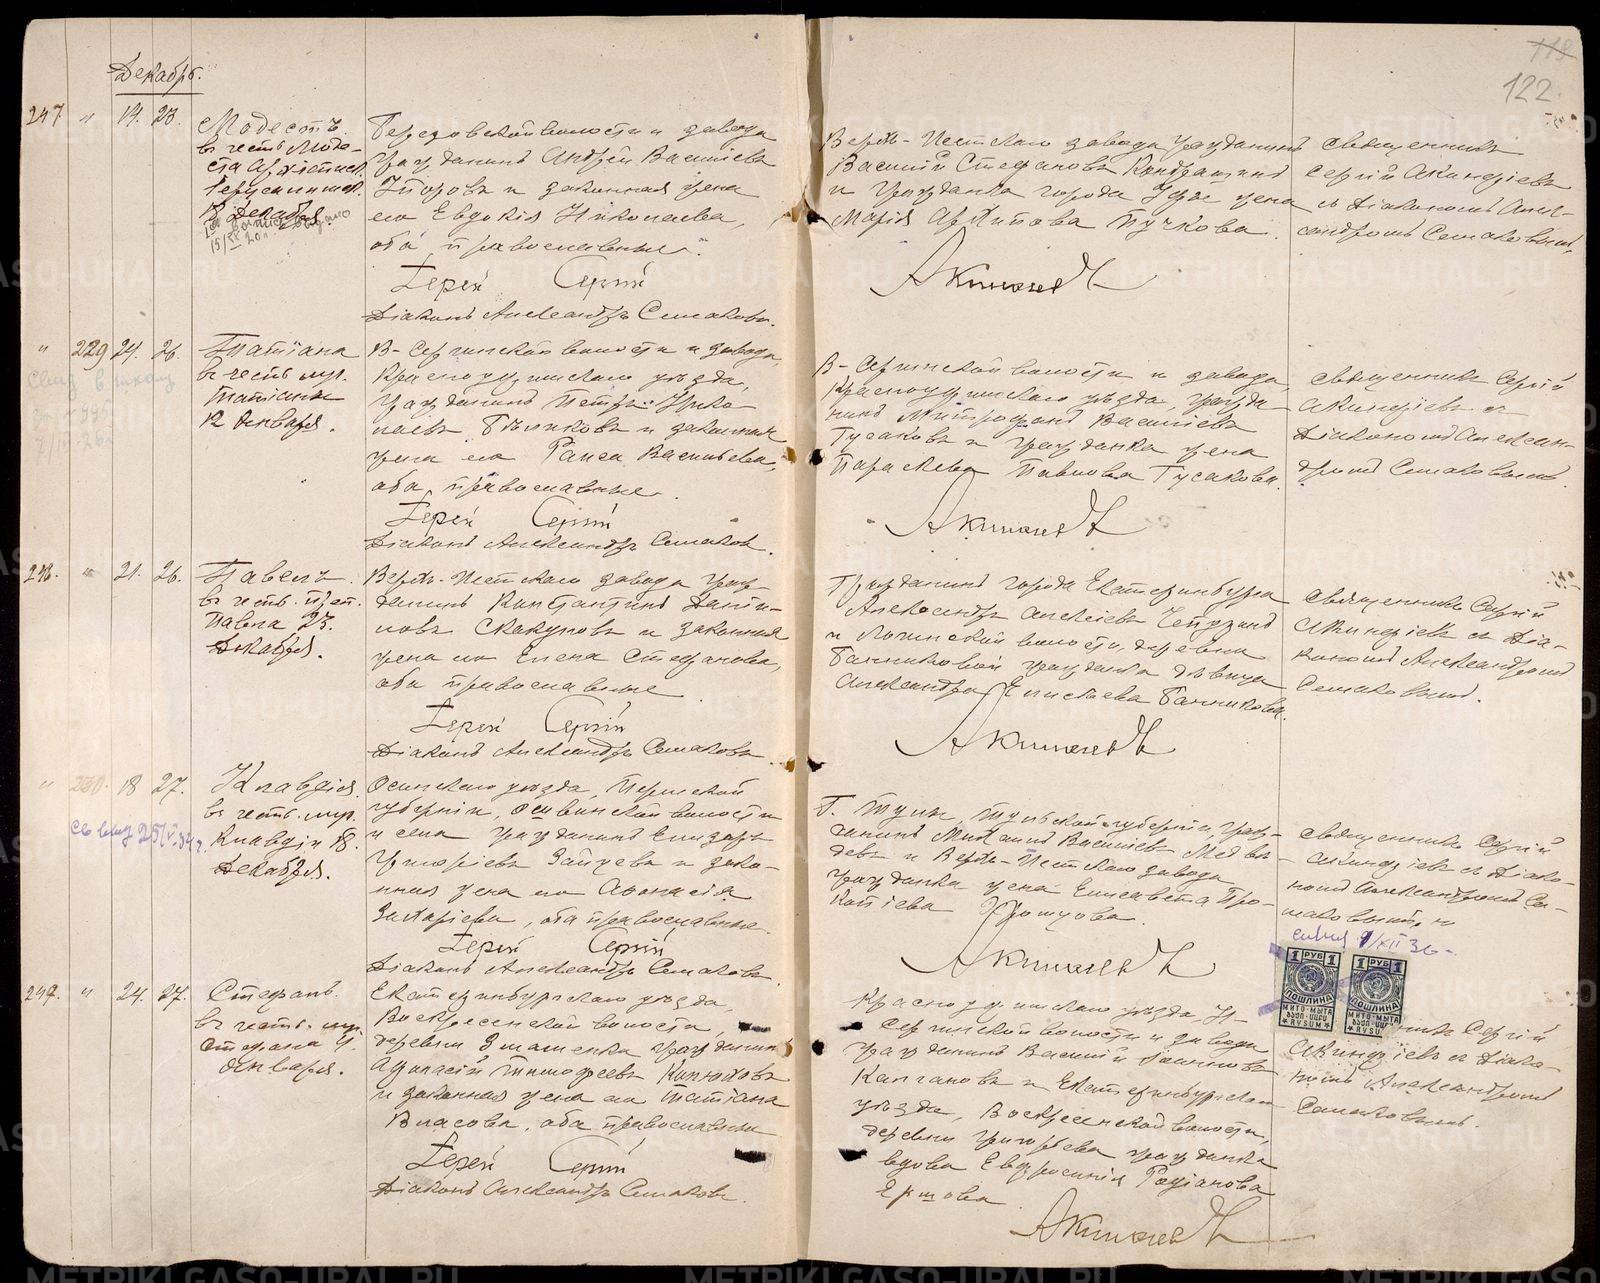 Декабрь.
122
247 " 14. 23.
Модестъ
въ честь Моде-
ста Архіепис.
Іерусалимск.
18 Декабря
Березовской волости и завода
гражданинъ Андрей Васильевъ
и законная жена
его Евдокія Николаева,
оба православные.
Іерей Сергій
Діаконъ Александръ Семаковъ.
Верхъ-Исетскаго завода гражданинъ
Василій Стефановъ Кондрашинъ
и гражданка города Уфы жена
Марія Архипова Пучкова.
священникъ
Сергій Акинфіевъ
съ Діакономъ Алек-
сандромъ Семаковымъ.
" 229 24. 26.
Татіана
въ честь муч.
Татіаны
12 Января.
В-Сергинской волости и завода
Красноуфимскаго уѣзда,
гражданинъ Петръ Нико-
лаевъ и законная
жена его Раиса Васильева,
оба православные.
Іерей Сергій
Діаконъ Александръ Семаковъ.
В-Сергинской волости и завода
Красноуфимскаго уѣзда, гражда-
нинъ Митрофанъ Васильевъ
Гусаковъ и гражданка жена
Параскева Павлова Гусакова.
священникъ Сергій
Акинфіевъ съ
Діакономъ Александ-
ромъ Семаковымъ.
248. " 21. 26.
Павелъ
въ честь преп.
Павла 23.
Декабря.
Верхъ-Исетскаго завода граж-
данинъ Константинъ Дани-
ловъ Скакуновъ и законная
жена его Елена Стефанова,
оба православные
Іерей Сергій
Діаконъ Александръ Семаковъ
Гражданинъ города Екатеринбурга
Александръ Алексіевъ
и волости, деревни
Банниковой гражданка дѣвица
Александра Елисѣева Банникова.
священникъ Сергій
Акинфіевъ съ Діа-
кономъ Александромъ
Семаковымъ.
" 230 18 27.
Клавдія
въ честь муч.
Клавдіи 18.
Декабря.
Осинскаго уѣзда, Пермской
губерніи, волости
и села гражданинъ Елизаръ
Григоріевъ Зайцевъ и зако-
нная жена его Аѳанасія
Захаріева, оба православные.
Іерей Сергій
Діаконъ Александръ Семаковъ
Г. Тулы, Тульской губерніи, граж-
данинъ Михаилъ Васильевъ Медвѣ-
девъ и Верхъ-Исетскаго завода
гражданка жена Елисавета Про-
копіева
священникъ Сергій
Акинфіевъ съ Діако-
номъ Александромъ Се-
маковымъ.
1 РУБ 1
ПОШЛИНА
1 РУБ 1
ПОШЛИНА
249. " 24. 27.
Стефанъ
въ честь муч.
Стефана 4
Января.
Екатеринбургскаго уѣзда,
Воскресенской волости,
деревни Знаменка гражданинъ
Аѳанасій Тимофеевъ
и законная жена его Татіана
Власова, оба православные
Іерей Сергій
Діаконъ Александръ Семаковъ.
Красноуфимскаго уѣзда, Н-
Сергинской волости и завода
гражданинъ Василій
и Екатеринбургскаго
уѣзда, Воскресенской волости,
деревни гражданка
вдова Евфросинія Родіонова
Ершова
Сергій
Акинфіевъ съ Діако-
номъ Александромъ
Семаковымъ.